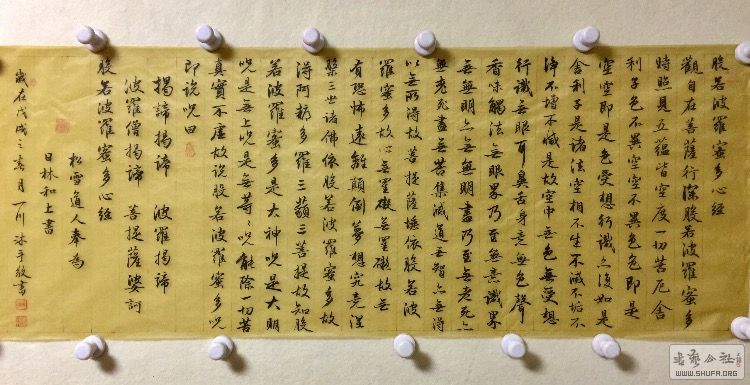 般若波羅蜜多心經
觀自在菩薩行深般若波羅蜜多
時照見五蘊皆空度一切苦厄舍
利子色不異空空不異色色即是
空空即是色受想行識亦復如是
舍利子是諸法空相不生不滅不垢不
淨不增不減是故空中無色無受想
行識無眼耳鼻舌身意無色聲
香味觸法無眼界乃至無意識界
無無明亦無無明盡乃至無老死亦
無老死盡無苦集滅道無智亦無得
以無所得故菩提薩埵依般若波
羅蜜多故心無罣礙無罣礙故無
有恐怖遠離顛倒夢想究竟涅
槃三世諸佛依般若波羅蜜多故
得阿耨多羅三藐三菩提故知般
若波羅蜜多是大神咒是大明
咒是無上咒是無等〻咒能除一切苦
真實不虛故說般若波羅蜜多咒
即說咒曰
揭諦揭諦 波羅揭諦
波羅僧揭諦 菩提薩婆訶
般若波羅蜜多心經
松雪道人奉為
日林和上書
歲在戊戌三月 川 敬書
書法公社
WWW.SHUFA.ORG